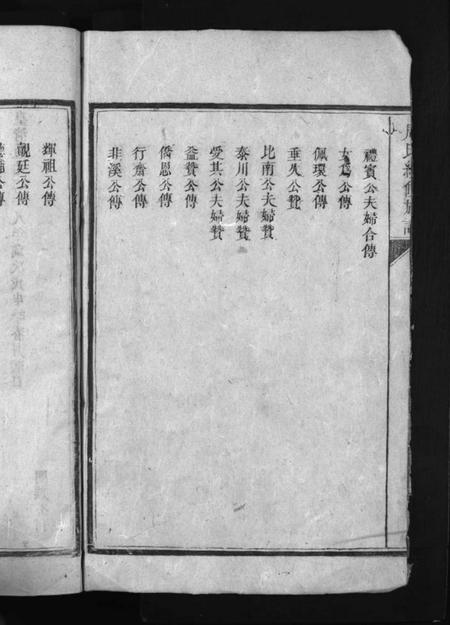 周氏續修族譜
禮賓公夫婦合傳
公傳
佩環公傳
垂久公贊
比南公夫婦贊
泰川公夫婦贊
愛其公夫婦贊
益贊公傳
僑恩公傳
行齋公傳
非溪公傳
輝祖公傳
覲廷公傳
公傳